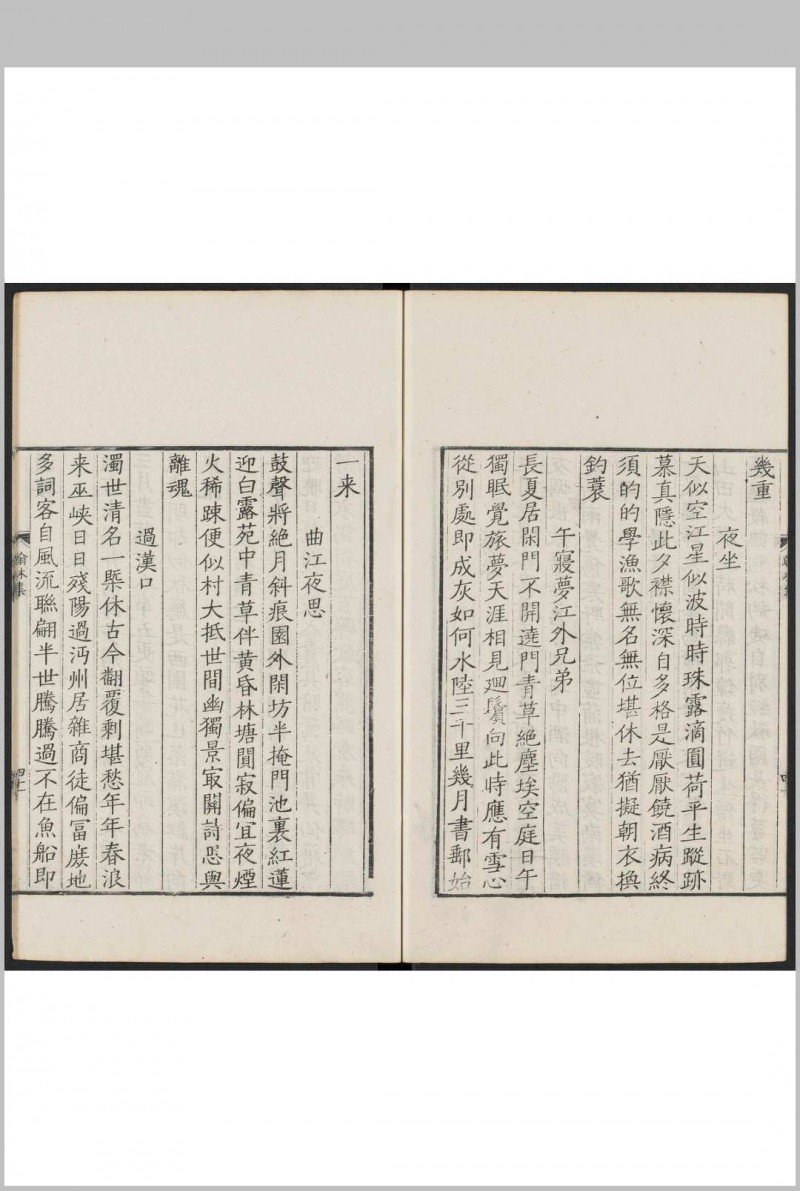 幾重
夜坐
天似空江星似波時時珠露滴圓荷平生蹤跡
慕真隱此夕襟懷深自多格是厭厭饒酒病終
須的的學漁歌無名無位堪休去猶擬朝衣換
釣蓑
午寢夢江外兄弟
長夏居閑門不開遶門青草絕塵埃空庭日午
獨眠覺旅夢天涯相見廻鬢向此時應有雪心
從別處即成灰如何水陸三千里幾月書郵始
一来
曲江夜思
鼓聲將絕月斜痕園外閑坊半掩門池裏紅蓮
迎白露苑中青草伴黃昏林塘闃寂偏宜夜煙
火稀踈便似村大抵世間幽獨景㝡關詩思與
離魂
過漢口
濁世清名一槩休古今翻覆剰堪愁年年春浪
来巫峽日日殘陽過沔州居雜商徒偏冨庻地
多詞客自風流聯翩半世騰騰過不在魚船即
翰林集
四十一